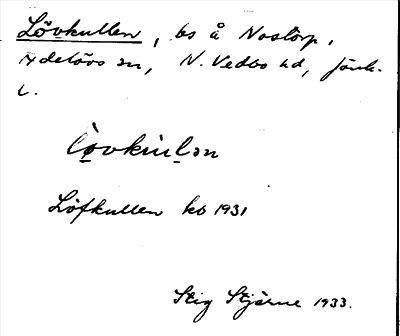 Lövkullen, bs å Nostorp,
Adelövs sn, N. Vedbo hd, Jönk.
l.
lövkul̥ən
Löfkullen kb 1931
Stig Stjärne 1933.